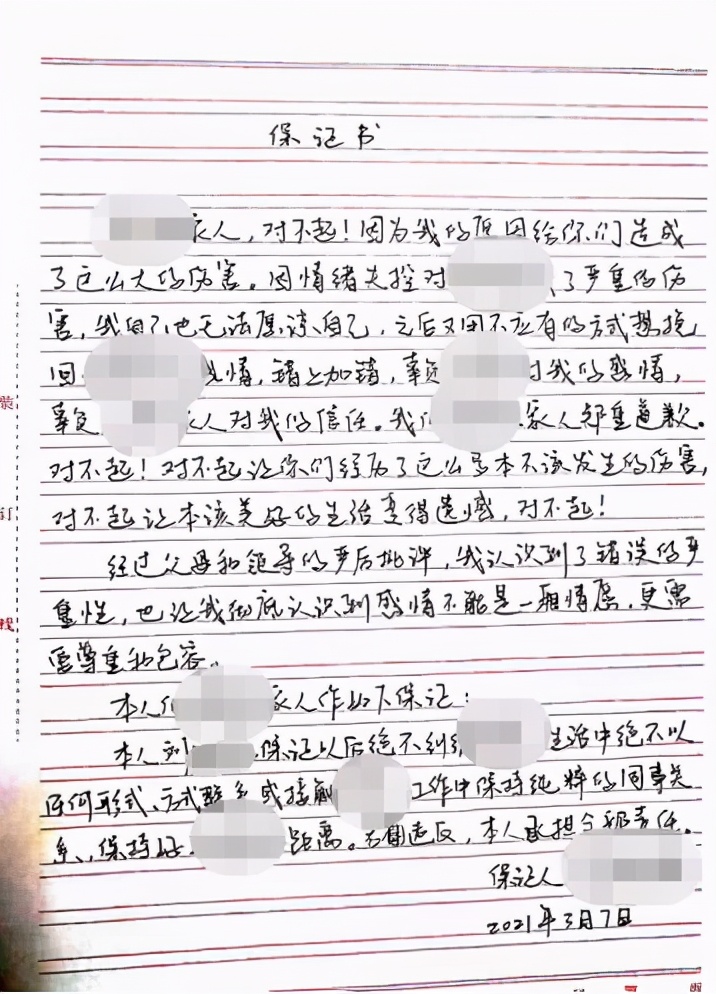 保证书
家人，对不起！因为我的原因给你们造成
了这么大的伤害。因情绪失控对 了严重的伤
害，我自己也无法原谅自己，之后又用不应有的方式想挽
回 感情，错上加错，辜负 对我的感情，
辜负 家人对我的信任。我 家人郑重道歉。
对不起！对不起让你们经历了这么多本不该发生的伤害，
对不起让本该美好的生活变得遗憾，对不起！
经过父母和领导的严厉批评，我认识到了错误的严
重性，也让我彻底认识到感情不能是一厢情愿，更需
要尊重和包容。
本人 家人作如下保证：
本人 保证以后绝不纠 生活中绝不以
任何形式、方式联系或接触 工作中保持纯粹的同事关
系，保持好 距离。如违反，本人承担全部责任。
保证人
2021年3月7日
装
订
线